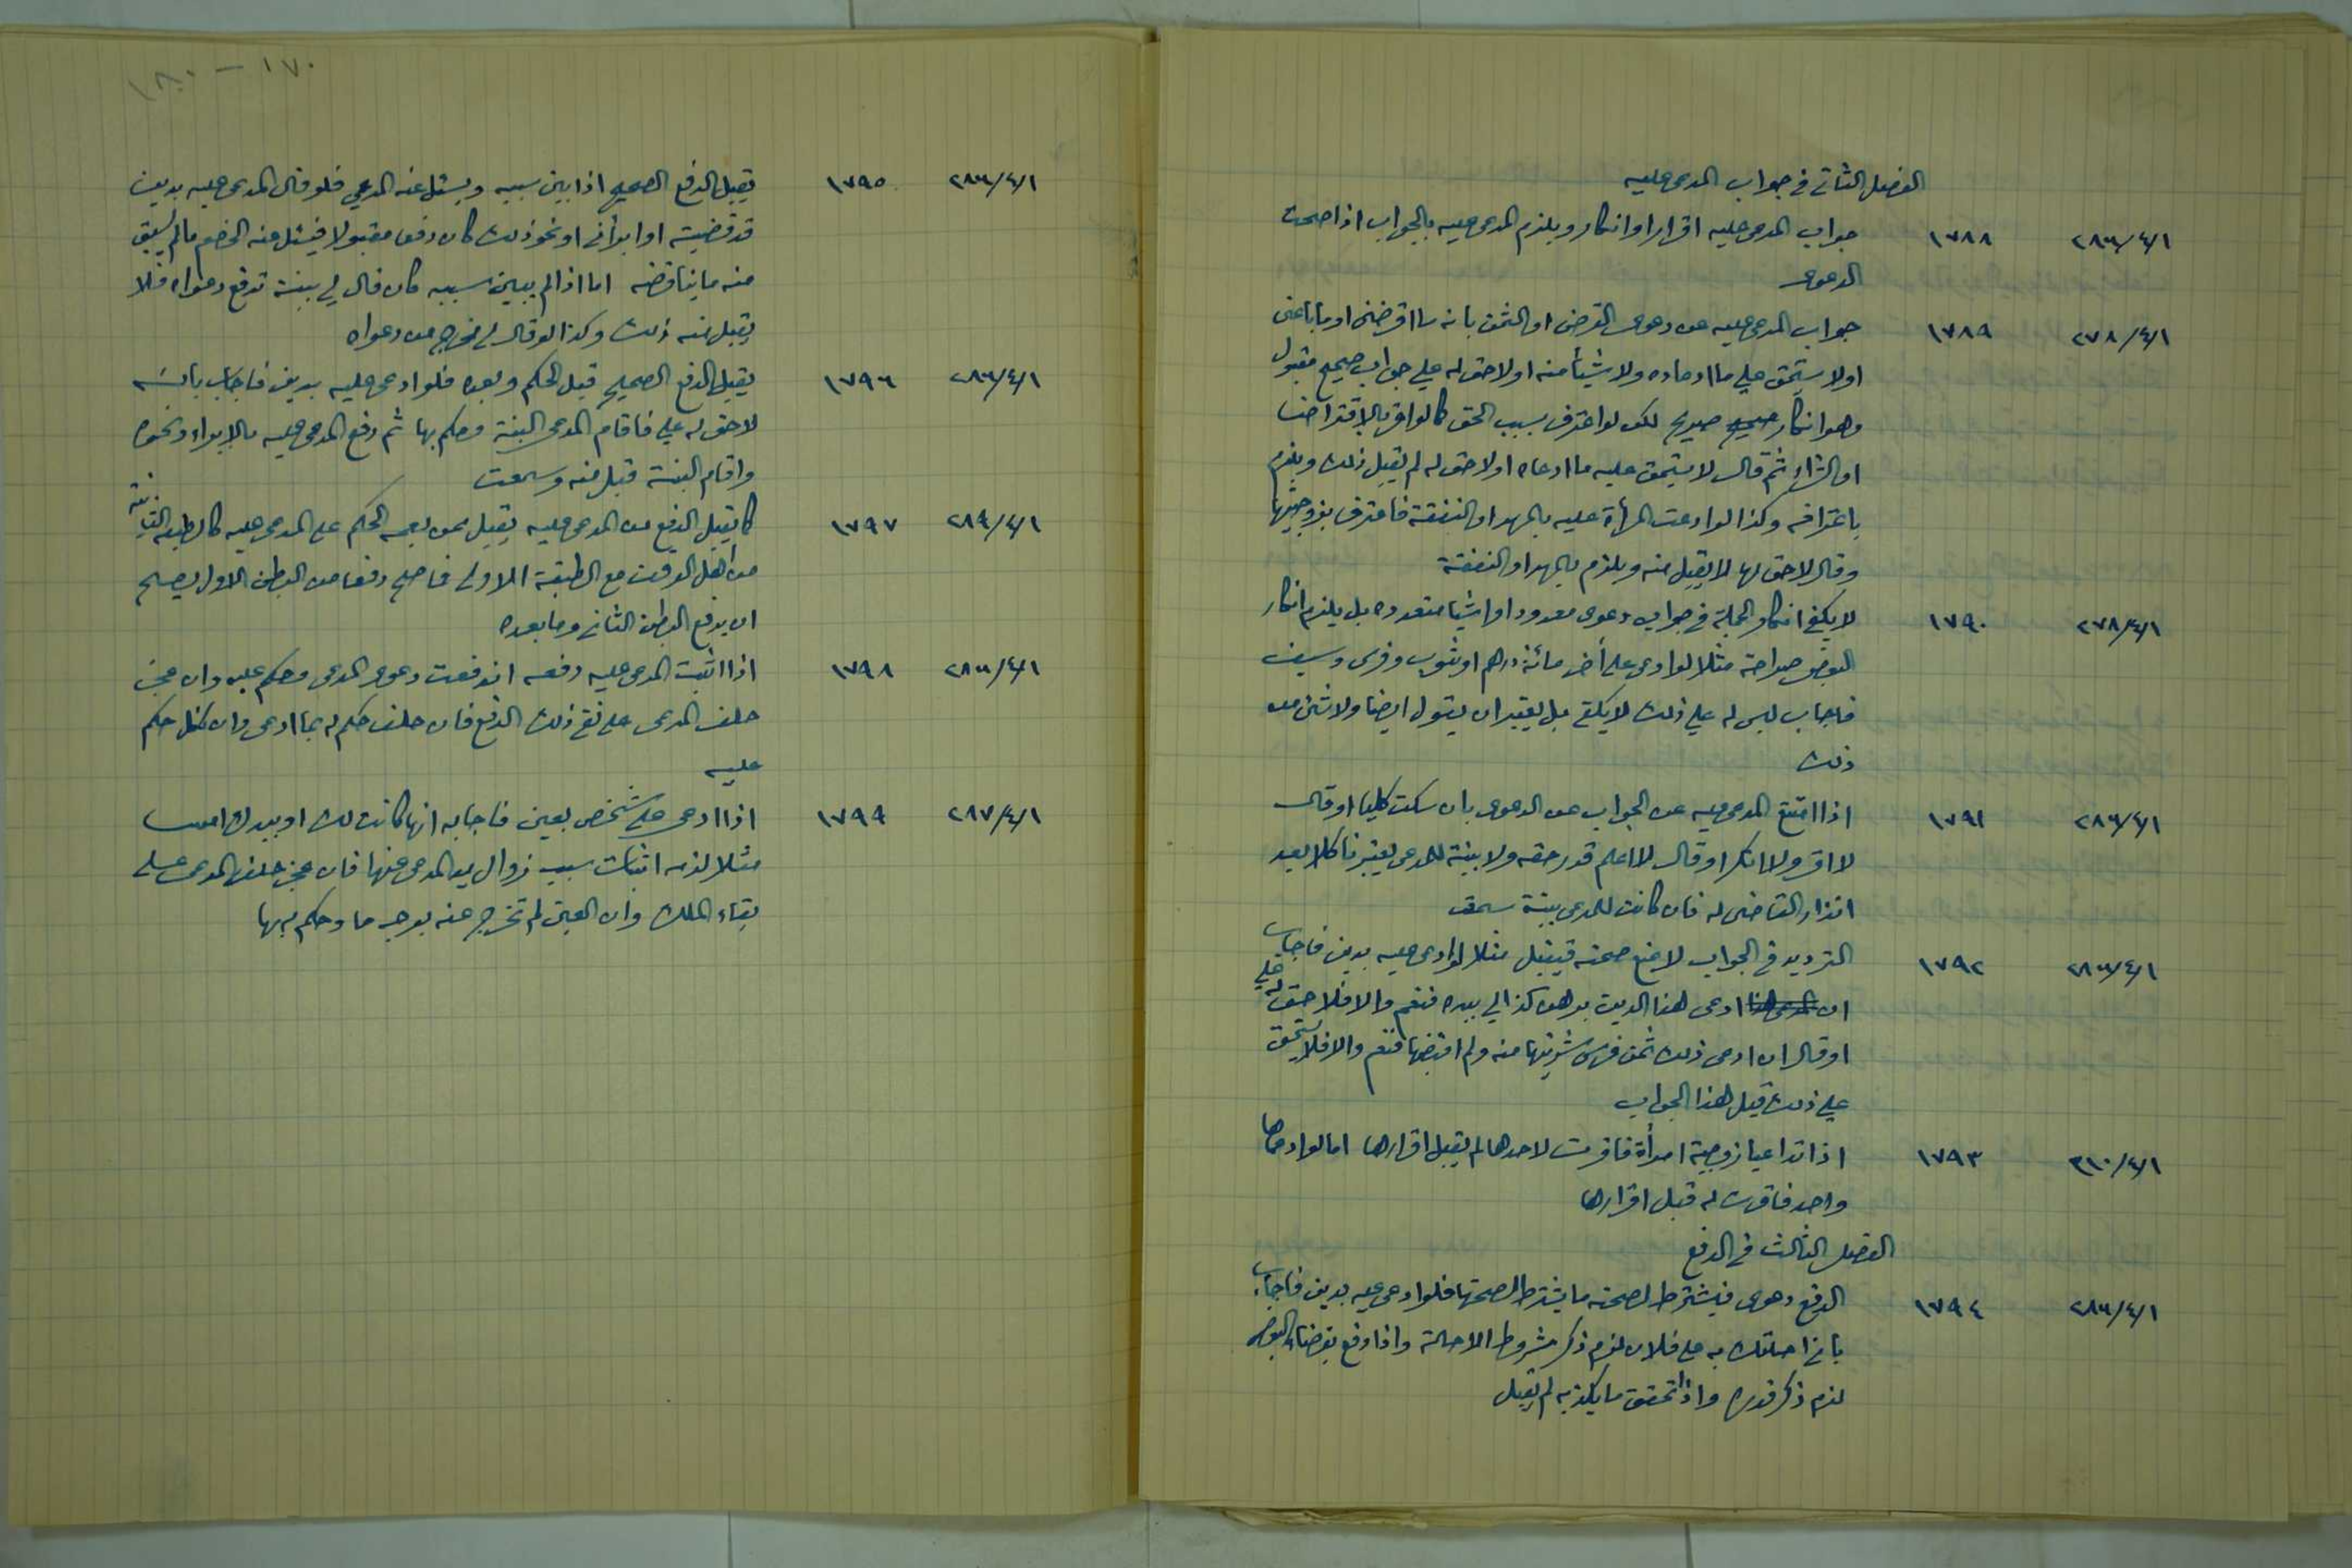 الفصل الثاني في جواب المدعى عليه
٢٨٦/٤/١ ١٧٨٨ جواب المدعى عليه اقرار او انكار ويلزم المدعى عليه بالجواب اذا صحت
الدعوى
٢٧٨/٤/١ ١٧٨٩ جواب المدعى عليه عن دعوى القرض او الثمن بانه ما اقرضني او ما باعني
او لا يستحق علي ما ادعاه ولا شيئاً منه او لا حق له علي جواب صحيح مقبول
وهو انكار صحيح صريح لكن لو اعترف بسبب الحق كما لو اقر بالاقتراض
او الشراء ثم قال لا يستحق عليه ما ادعاه او لا حق له لم يقبل ذلك ويلزم
باعترافه وكذا لو ادعت المرأة عليه بالمهر او النفقة فاعترف بزوجيتها
وقال لا حق لها لا يقبل منه ويلزم بالمهر او النفقة
٢٧٨/٤/١ ١٧٩٠ لا يكفي انكار الجملة في جواب دعوى معدود او اشيا متعدده بل يلزم انكار
البعض صراحة مثلا لو ادعى على أخر مائة درهم او ثوب وفرس وسيف
فاجاب ليس له علي ذلك لا يكفي بل يعتبر ان يقول ايضا ولا شئ من
ذلك
٢٨٦/٤/١ ١٧٩١ اذا امتنع المدعى عليه عن الجواب عن الدعوى بان سكت كليا او قال
لا اقر ولا انكر او قال لا اعلم قدر حقه ولا بينة للمدعى يعتبر ناكلا بعد
انذار القاضى له فان كانت للمدعى بينة سمعت
٢٨٦/٤/١ ١٧٩٢ الترديد في الجواب لا يمنع صحته فيقبل مثلا لو ادعى عليه بدين فاجاب
ان المدعى هذا ادعى هذا الدين برهن كذا لي بيده فنعم والا فلا حق له علي
او قال ان ادعى ذلك ثمن فرس شريتها منه ولم اقبضها فنعم والا فلا يستحق
علي ذلك قبل هذا الجواب
٣١٠/٤/١ ١٧٩٣ اذا تداعيا زوجية امرأة فاقرت لاحدهما لم يقبل اقرارها اما لو ادعاها
واحد فاقرت له قبل اقرارها
الفصل الثالث في الدفع
٢٨٦/٤/١ ١٧٩٤ الدفع دعوى فيشترط لصحته ما يشترط لصحتها فلو ادعى عليه بدين فاجاب
باني احلتك به على فلان لزم ذكر شروط الاحالة واذا دفع بقضاء البعض
لزم ذكر قدره واذا تحقق ما يكذبه لم يقبل
١٧٠ – ١٨٠
٢٨٦/٤/١ ١٧٩٥ يقبل الدفع الصحيح اذا بين سببه ويسئل عنه المدعي فلو قال المدعى عليه بدين
قد قضيته او ابرأني او نحو ذلك كان دفعا مقبولا فيسئل عنه الخصم ما لم يسبق
منه ما يناقضه اما اذا لم يبين سببه كان قال لي بينة تدفع دعواه فلا
يقبل منه ذلك وكذا لو قال لي مخرج من دعواه
٢٨٦/٤/١ ١٧٩٦ يقبل الدفع الصحيح قبل الحكم وبعده فلو ادعى عليه بدين فاجاب بانه
لا حق له علي فاقام المدعى البينة وحكم بها ثم دفع المدعى عليه بالابراء ونحوه
واقام البينة قبل منه وسمعت
٢٨٩/٤/١ ١٧٩٧ كما يقبل الدفع من المدعى عليه يقبل ممن يعمه الحكم على المدعى عليه كالطبقه الثانية
من اهل الوقف مع الطبقة الاولى فما صلح دفعا من البطن الاول يصلح
ان يدفع البطن الثاني وما بعده
٢٨٦/٤/١ ١٧٩٨ اذا اثبت المدعى عليه دفعه اندفعت دعوى المدعى وحكم عليه وان عجز
حلف المدعى على نفي ذلك الدفع فان حلف حكم له بما ادعى وان نكل حكم
عليه
٢٨٧/٤/١ ١٧٩٩ اذا ادعى على شخص بعين فاجابه انها كانت لك او بيدك امس
مثلا لزمه اثبات سبب زوال يد المدعى عنها فان عجز حلف المدعى على
بقاء الملك وان العين لم تخرج عنه بوجه ما وحكم له بها